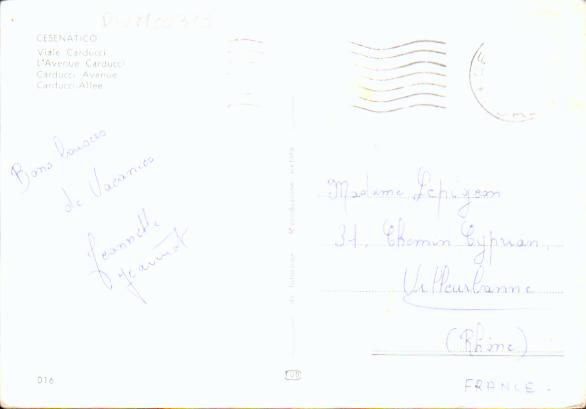 CESENATICO
Viale Carducci
L'Avenue Carducci
Carducci Avenue
Carducci-Allee
Bons baisers
de Vacances
Jeannette
Madame
31, Chemin Cyprian,
Villeurbanne
(Rhône)
FRANCE.
riproduzione vietata
D16